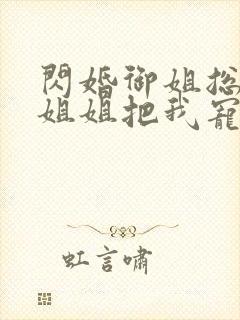 閃婚御姐总
姐姐把我寵
虹言嘯